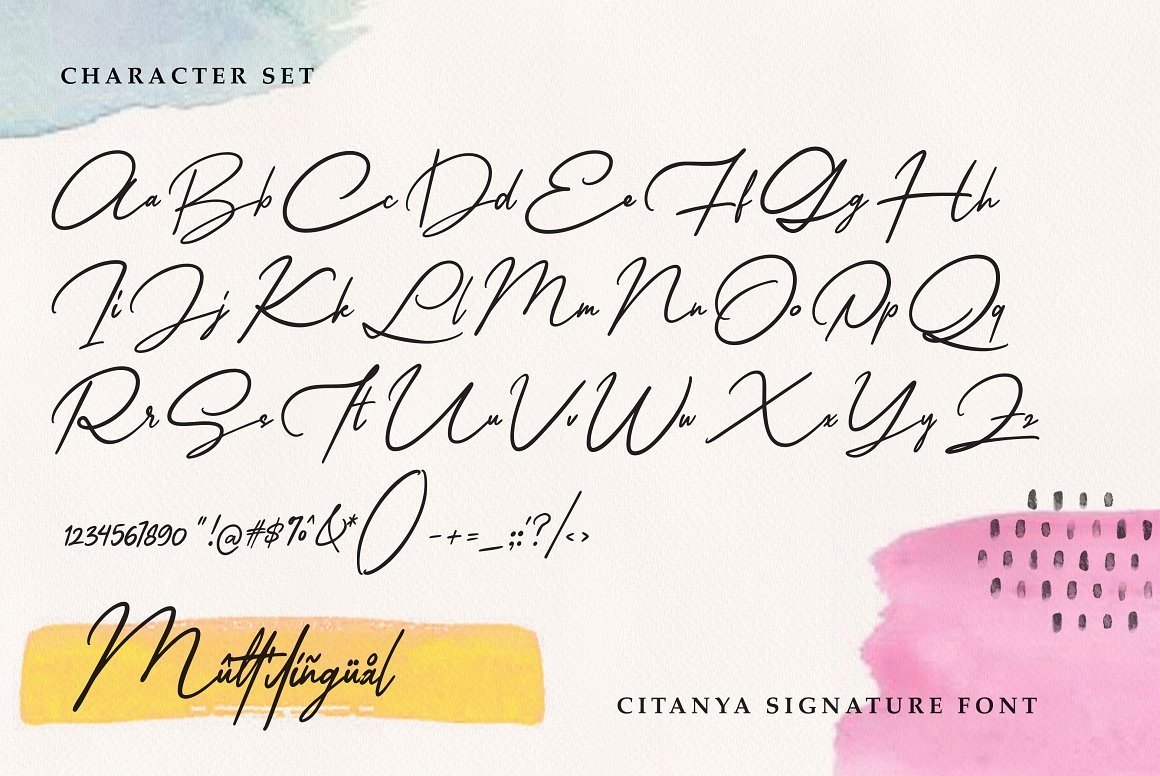 CHARACTER SET
Aa Bb Cc Dd Ee Ff Gg Hh
Ii Jj Kk Ll Mm Nn Oo Pp Qq
Rr Ss Tt Uu Vv Ww Xx Yy Zz
1234567890 "!@#$%^&*() -+=_;:'?/<>
Mûltílíñgüål
CITANYA SIGNATURE FONT